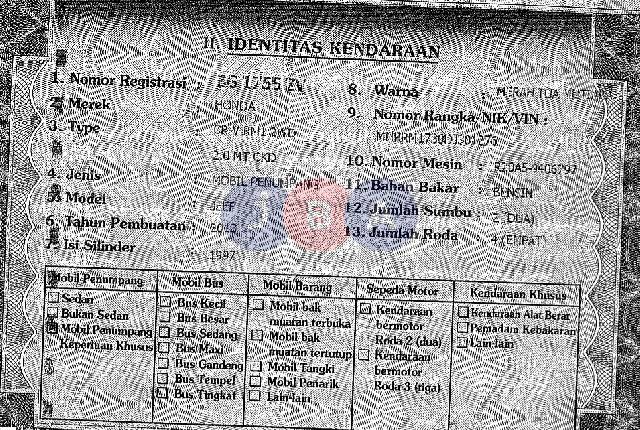 II. IDENTITAS KENDARAAN
1. Nomor Registrasi :
2. Merek : HONDA
3. Type :
2.0 MT CKD
4. Jenis : MOBIL PENUMPANG
5. Model : JEEP
6. Tahun Pembuatan :
7. Isi Silinder : 1997
8. Warna : MERAH TUA
9. Nomor Rangka/NIK/VIN :
10. Nomor Mesin :
11. Bahan Bakar : BENSIN
12. Jumlah Sumbu : 2 (DUA)
13. Jumlah Roda : 4 (EMPAT)
Mobil Penumpang
Sedan
Bukan Sedan
Mobil Penumpang
Keperluan Khusus
Mobil Bus
Bus Kecil
Bus Besar
Bus Sedang
Bus Maxi
Bus Gandeng
Bus Tempel
Bus Tingkat
Mobil Barang
Mobil bak
muatan terbuka
Mobil bak
muatan tertutup
Mobil Tangki
Mobil Penarik
Lain-lain
Sepeda Motor
Kendaraan
bermotor
Roda 2 (dua)
Kendaraan
bermotor
Roda 3 (tiga)
Kendaraan Khusus
Kendaraan Alat Berat
Pemadam Kebakaran
Lain-lain